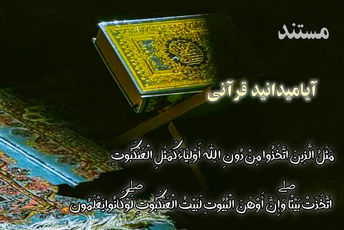 مستند
آیا میدانید قرآنی
مَثَلُ الَّذِينَ اتَّخَذُوا مِنْ دُونِ اللَّهِ أَوْلِيَاءَ كَمَثَلِ الْعَنْكَبُوتِ
اتَّخَذَتْ بَيْتًا ۖ وَإِنَّ أَوْهَنَ الْبُيُوتِ لَبَيْتُ الْعَنْكَبُوتِ ۖ لَوْ كَانُوا يَعْلَمُونَ